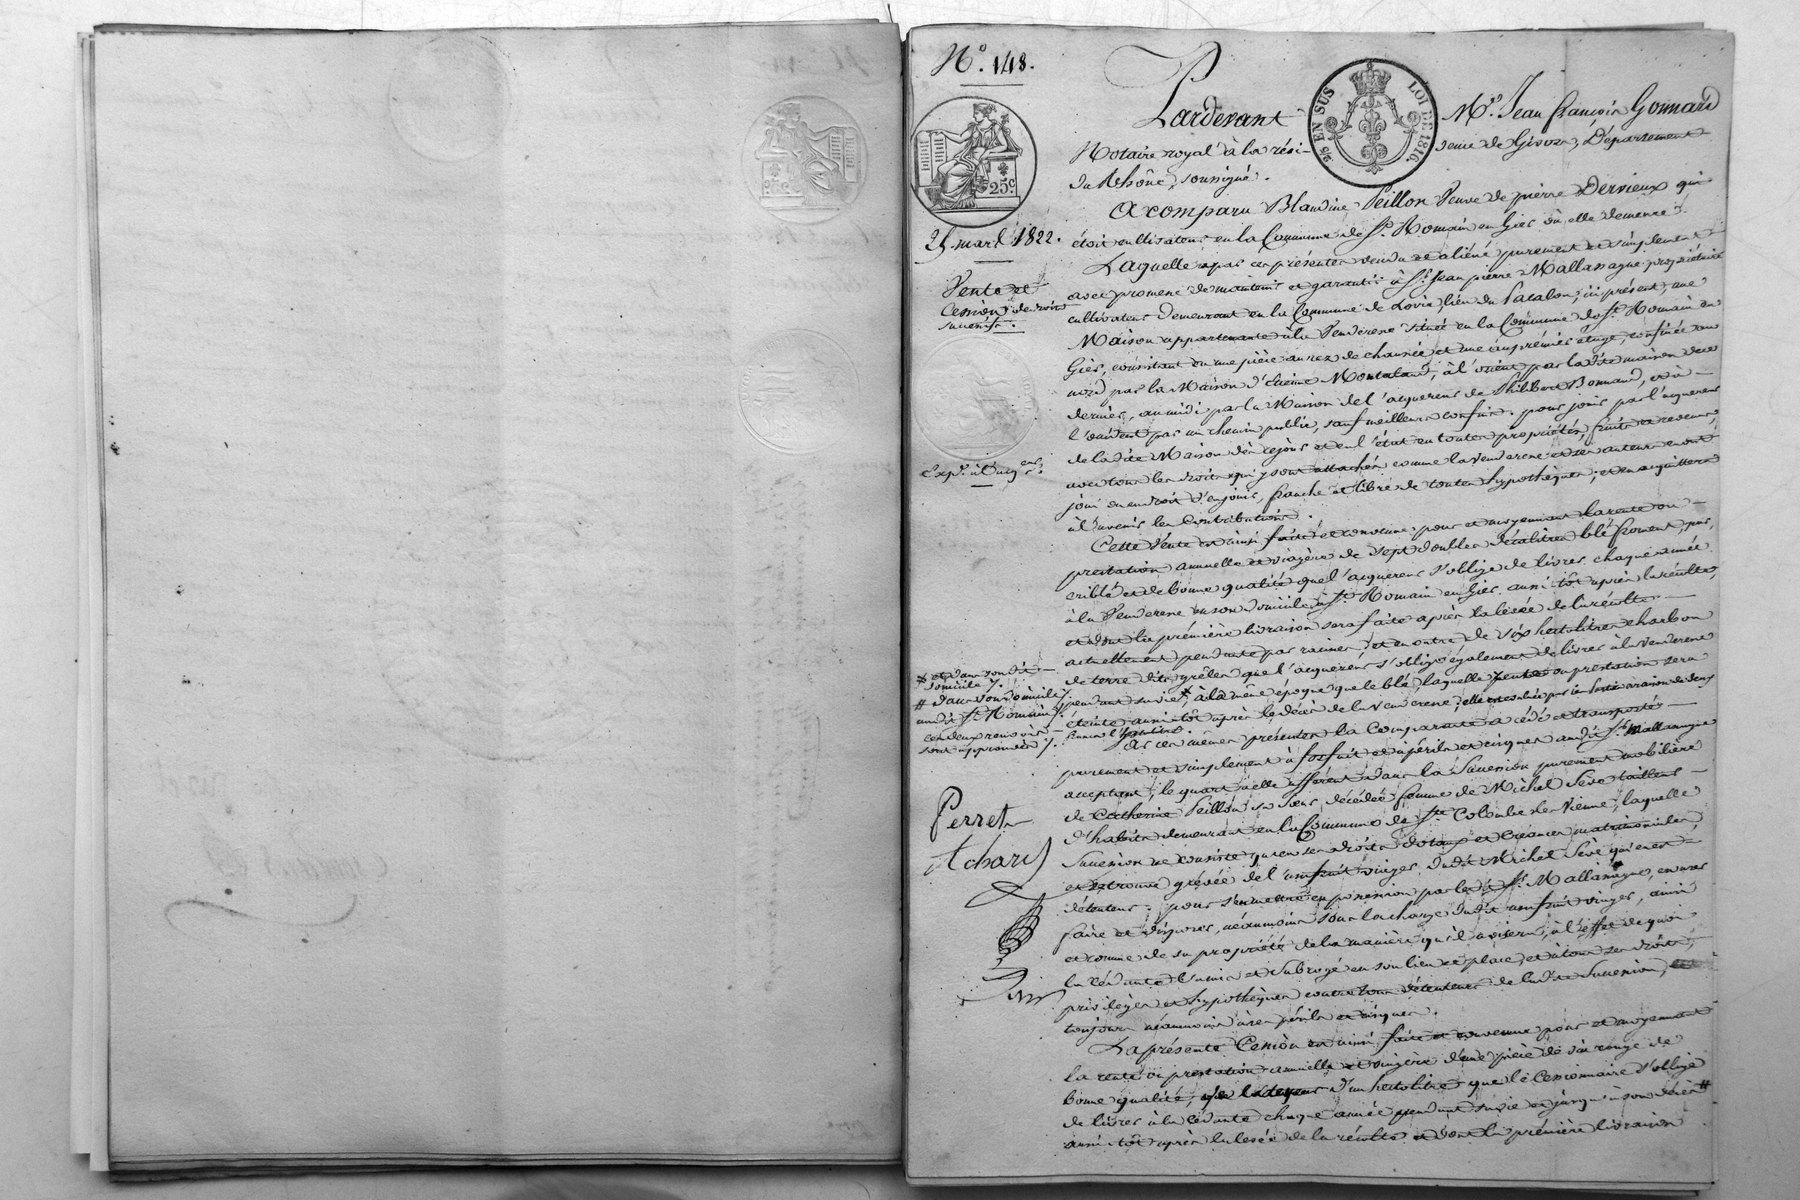 N.º 148.
25 EN SUS LOI DE 1816.
25.c
25 mars 1822.
Vente et
Cession de droits
successifs.
Expᵒⁿ. à l'acqᵉʳ.
Pardevant Mᵉ. Jean françois Gonnard
Notaire royal à la résidence de Givors, Département
du Rhône, soussigné.
A comparu Blandine Peillon Veuve de pierre Dervieux qui
étoit cultivateur en la Commune de St. Romain en Gies où elle demeure.
Laquelle a par ces présentes vendu et aliéné purement et simplement
avec promesse de maintenir et garantir à Sr. Jean pierre Mallassagne propriétaire
cultivateur demeurant en la Commune de Loire, lieu du Patalon, ici présent, une
Maison appartenante à la Venderesse située en la Commune de St. Romain en
Gies, consistant en une pièce au rez de chaussée et une au premier étage, confinée au
nord par la Maison d'Etienne Montaland, à l'orient par la dite maison de ce
dernier, au midi par la Maison de l'acquereur de Philibert Bonnard, et à
l'occident par un chemin public, sauf meilleurs confins. pour jouir par l'acquereur
de la dite Maison dès ce jour et en l'état en toutes propriétés, fruits et revenus,
avec tous les droits qui y sont attachés comme la Venderesse et ses auteurs en ont
joui ou eu droit d'en jouir, franche et libre de toutes hypothèques, et en acquittera
à l'avenir les Contributions.
Cette Vente est ainsi faite et convenue pour et moyennant la rente ou
prestation annuelle et viagère de sept doubles décalitres blé froment pur,
criblé et de bonne qualité que l'acquereur s'oblige de livrer chaque année
à la Venderesse en son domicile à St. Romain en Gies aussitôt après la récolte,
et dont la première livraison sera faite après la levée de la récolte
actuellement pendante par racines, et en outre de six hectolitres charbon
de terre dits grêles que l'acquereur s'oblige également de livrer à la Venderesse
pendant sa vie, # à la même époque que le blé, laquelle rente ou prestation sera
éteinte aussitôt après le décès de la Venderesse;
# et dans son dit
domicile /.
# dans son domicile
audit St. Romain /.
ces deux renvois
sont approuvés /.
Par ces mêmes présentes la Comparante a cédé et transporté
purement et simplement à forfait et à périls et risques audit Sr. Mallassagne
acceptant, le quart à elle afférent dans la Succession purement mobilière
de Catherine Peillon sa soeur, décédée femme de Michel Seve tailleur
d'habits demeurant en la Commune de Ste. Colombe les Vienne, laquelle
Succession ne consiste qu'en ses droits dotaux et Créances matrimoniales,
et se trouve grévée de l'usufruit viager dudit Michel Seve qui en est
détenteur. pour s'en mettre en possession par ledit Sr. Mallassagne, en user
faire et disposer, néanmoins sous la charge dudit usufruit viager, ainsi
et comme de sa propriété de la manière qu'il avisera, à l'effet de quoi
la Cédante l'a mis et subrogé en son lieu et place, et à tous ses droits,
privilèges et hypothèques contre tous détenteurs de la dite Succession,
toujours néanmoins à ses périls et risques.
La présente Cession est ainsi faite et convenue pour et moyennant
la rente ou prestation annuelle et viagère d'une pièce de vin rouge de
bonne qualité, d'un hectolitre que le Cessionnaire s'oblige
de livrer à la Cédante chaque année pendant sa vie et jusqu'à son décès #
aussitôt après la levée de la récolte et dont la première livraison
Perret
Achard